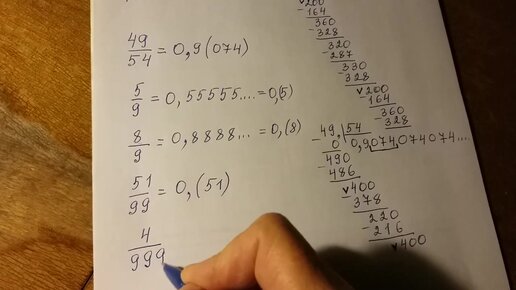 49/54 = 0,9(074)
5/9 = 0,55555.... = 0,(5)
8/9 = 0,8888... = 0,(8)
51/99 = 0,(51)
4/999
200
-164
360
-328
320
-287
330
-328
200
-164
360
-328
-49, 54
0 0,9074074074...
-490
486
-400
378
-220
216
400